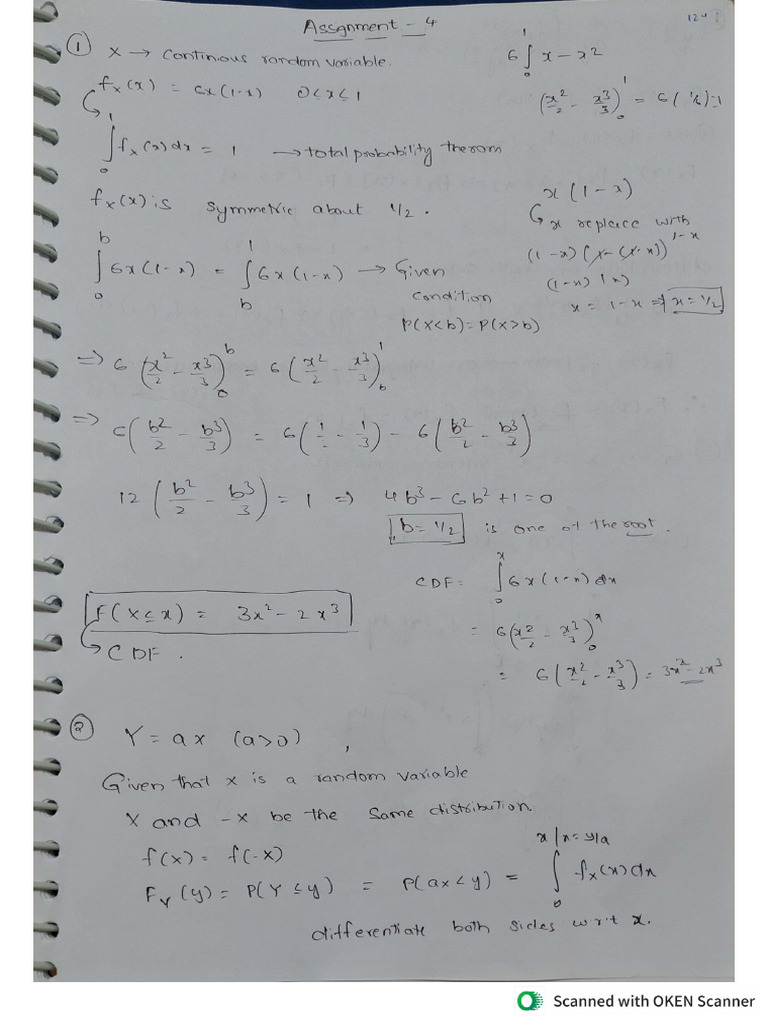 Assgnment - 4
① X → Continous random variable.
f_x(x) = 6x(1-x) 0≤x≤1
∫₀¹ f_x(x)dx = 1 → total probability therom
f_x(x) is symmetric about 1/2.
6∫₀¹ x - x²
(x²/2 - x³/3)₀¹ = 6(1/6)=1
x(1-x)
↳ x replace with 1-x
(1-x)(1-(1-x))
(1-x)(x)
x = 1-x ⇒ x = 1/2
∫₀ᵇ 6x(1-x) = ∫_b¹ 6x(1-x) → Given condition
P(X<b) = P(X>b)
⇒ 6(x²/2 - x³/3)₀ᵇ = 6(x²/2 - x³/3)_b¹
⇒ 6(b²/2 - b³/3) = 6(1/2 - 1/3) - 6(b²/2 - b³/3)
12(b²/2 - b³/3) = 1 ⇒ 4b³ - 6b² + 1 = 0
b = 1/2 is one of the root.
CDF = ∫₀ˣ 6x(1-x)dx
= 6(x²/2 - x³/3)₀ˣ
= 6(x²/2 - x³/3) = 3x² - 2x³
F(X≤x) = 3x² - 2x³
↳ CDF.
② Y = ax (a>0) ,
Given that x is a random variable
X and -X be the same distribution.
f(x) = f(-x)
F_Y(y) = P(Y≤y) = P(ax<y) = ∫₀^{x/x=y/a} f_x(x)dx
differentiate both sides wrt x.
Scanned with OKEN Scanner